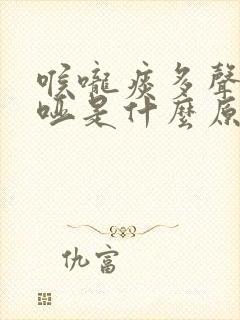 喉嚨痰多聲
啞是什麼原
仇富